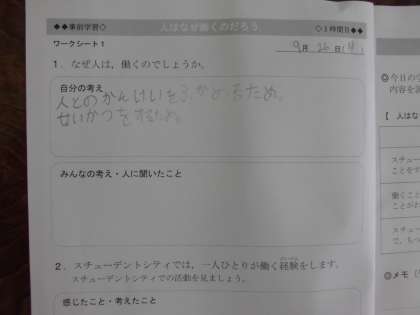 ◆◆事前学習◇ 人はなぜ働くのだろう ◇1時間目◆◆
ワークシート1
9月26日( )
1.なぜ人は,働くのでしょうか。
自分の考え
人とのかんけいをふかめるため。
せいかつをするため。
みんなの考え・人に聞いたこと
2.スチューデントシティでは,一人ひとりが働く経験をします。
スチューデントシティでの活動を見ましょう。
感じたこと・考えたこと
◎今日の
内容を
【 人はな
スチュー
ことをす
働くこと
ことがね
スチュー
◎メモ